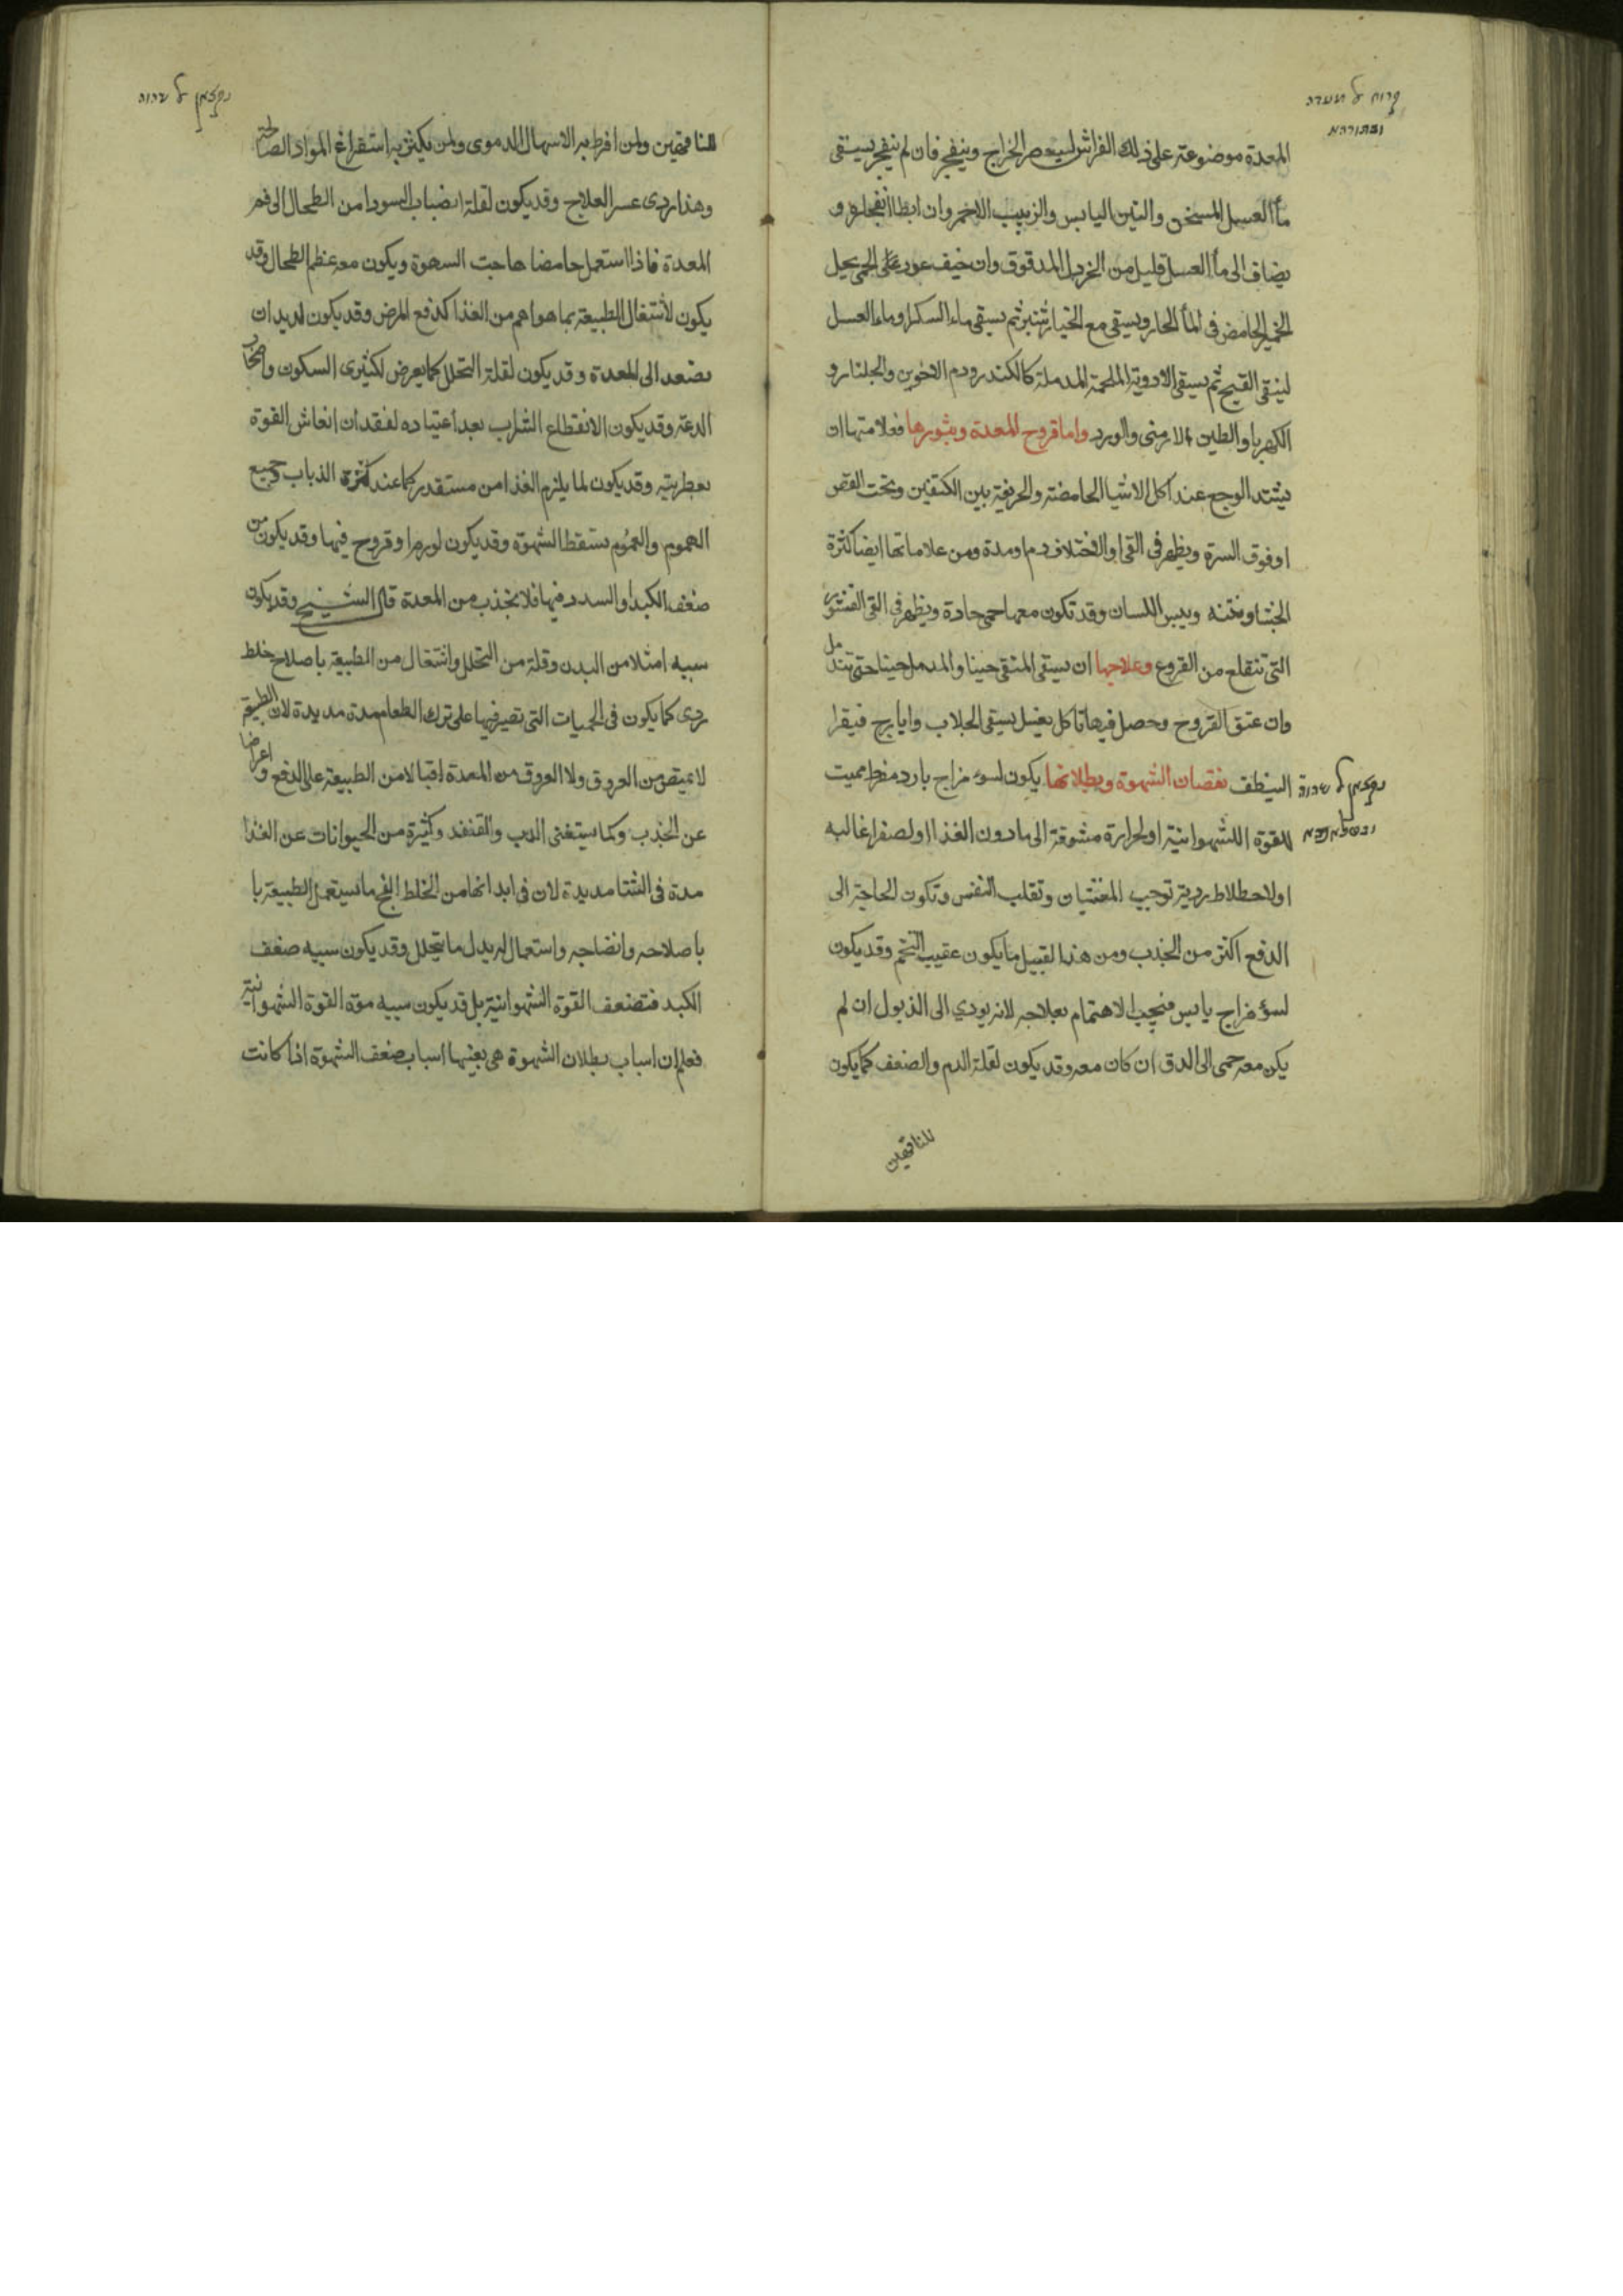 المعدة موضوعة على ذلك الفراش ليعصر الخراج وينفجر فان لم ينفجر يسقى
ماٴ العسل المسخن والتين اليابس والزبيب الاحمر وان ابطا انفجاره و
يضاف الى ماٴ العسل قليل من الخردل المدقوق وان خيف عود على الحمى يحل
الخمير الحامض فى الماٴ الحار ويسقى مع الخيارشنبر ثم يسقى ماء السكر او ماء العسل
لينقى القيح ثم يسقى الادوية الملحمة المدملة كالكندر ودم الاخوين والجلنار و
الكهربا والطين الارمنى والورد واما قروح المعدة وبثورها فعلامتها ان
يشتد الوجع عند اكل الاشيا الحامضة والحريفة بين الكتفين وتحت القص
او فوق السرة ويظهر فى القى او الاختلاف دم او مدة ومن علاماتها ايضا كثرة
الجشا ونتنه ويبس اللسان وقد تكون معها حمى حادة ويظهر فى القى القشور
التى تنقلع من القروح وعلاجها ان يسقى المنقى حينا والمدمل حينا حتى تندمل
وان عتق القروح وحصل فيها تاكل يغسل بسقى الجلاب وايارج فيقرا
لينظف نقصان الشهوة وبطلانها يكون لسوء مزاج بارد مفرط مميت
للقوة الشهوانية او لحرارة مشوقة الى ما دون الغذا او لصفرا غالبه
او لاخلاط ردية توجب الغثيان وتقلب النفس وتكون الحاجة الى
الدفع اكثر من الجذب ومن هذا القبيل ما يكون عقيب التخم وقد يكون
لسوٴ مزاج يابس فيجب الاهتمام بعلاجه لانه يودي الى الذبول ان لم
يكن معه حمى الى الدق ان كان معه وقد يكون لقلة الدم والضعف كما يكون
للناقهين
للناقهين ولمن افرط به الاسهال الدموى ولمن يكثر به استفراغ المواد الصالحة
وهذا ردى عسر العلاج وقد يكون لقلة انصباب السودا من الطحال الى فم
المعدة فاذا استعمل حامضا هاجت السهوة ويكون معه عظم الطحال وقد
يكون لاشتغال الطبيعة بما هو اهم من الغذا كدفع المرض وقد يكون لديدان
تصعد الى المعدة وقد يكون لقلة التحلل كما يعرض لكثيرى السكون واصحاب
الدعة وقد يكون الانقطاع الشراب بعد اعتياده لفقدان انعاش القوة
بعطريته وقد يكون لما يلزم الغذا من مستقذر كما عند كثرة الذباب وجميع
الهموم والغموم تسقط الشهوة وقد يكون لورم او قروح فيها وقد يكون من
ضعف الكبد او السدد فيها فلا يجذب من المعدة قال الشيخ وقد يكون
سببه امتلا من البدن وقلة من التحلل واشتغال من الطبيعة باصلاح خلط
ردى كما يكون فى الحميات التى تصبر فيها على ترك الطعام مدة مديدة لان الطبيعة
لا يمتص من العروق ولا العروق من المعدة اقبالا من الطبيعة على الدفع واعراضا
عن الجذب وكما يستغنى الدب والقنفد وكثيرة من الحيوانات عن الغذا
مدة فى الشتا مديدة لان فى ابدانها من الخلط الفج ما يستعمل الطبيعة با
باصلاحه وانضاجه واستعماله بدل ما يتحلل وقد يكون سببه ضعف
الكبد فتضعف القوة الشهوانية بل قد يكون سببه موت القوة الشهوانية
فعلم ان اسباب بطلان الشهوة هى بعينها اسباب ضعف الشهوة اذا كانت